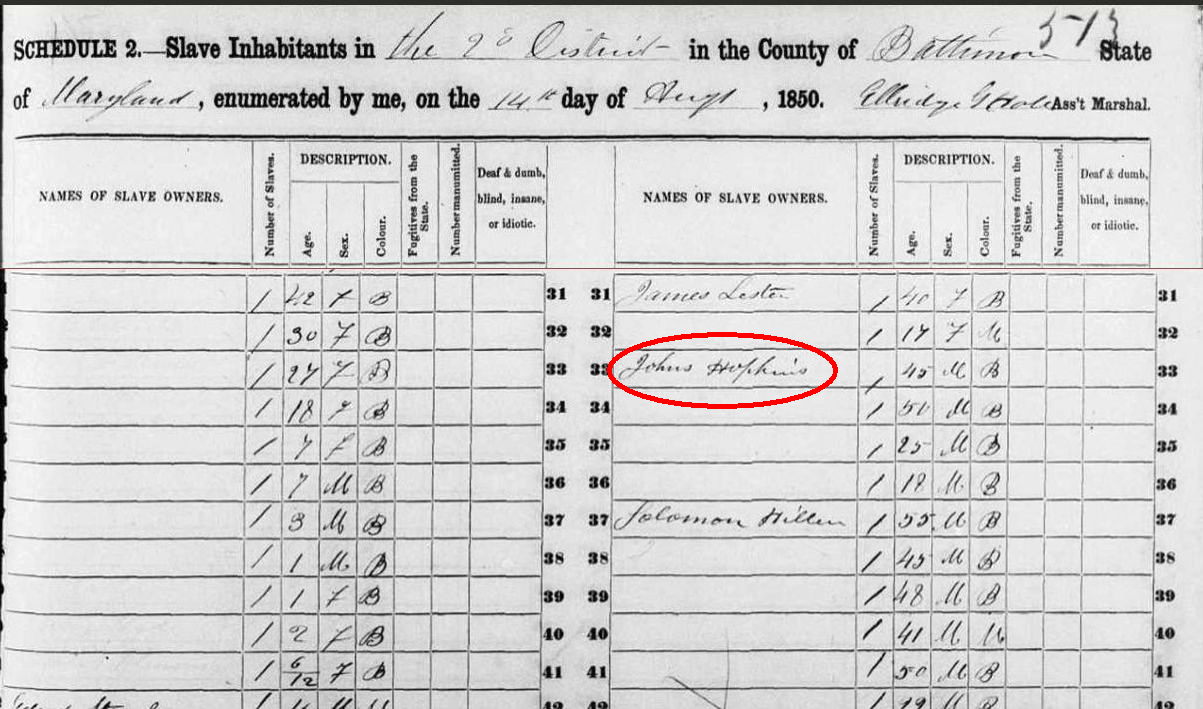 513
SCHEDULE 2.—Slave Inhabitants in the 2d District in the County of Baltimore State
of Maryland, enumerated by me, on the 14th day of Augt, 1850. Elbridge G Ass't Marshal.
NAMES OF SLAVE OWNERS. Number of Slaves. DESCRIPTION. Age. Sex. Colour. Fugitives from the State. Number manumitted. Deaf & dumb, blind, insane, or idiotic. NAMES OF SLAVE OWNERS. Number of Slaves. DESCRIPTION. Age. Sex. Colour. Fugitives from the State. Number manumitted. Deaf & dumb, blind, insane, or idiotic.
1 42 F B 31 31 James Lester 1 40 F B 31
1 30 F B 32 32 1 17 F M 32
1 27 F B 33 33 Johns Hopkins 1 45 M B 33
1 18 F B 34 34 1 50 M B 34
1 7 F B 35 35 1 25 M B 35
1 7 M B 36 36 1 18 M B 36
1 3 M B 37 37 Solomon Hillen 1 55 M B 37
1 1 M B 38 38 1 45 M B 38
1 1 F B 39 39 1 48 M B 39
1 2 F B 40 40 1 41 M M 40
1 6/12 F B 41 41 1 50 M B 41
42 42 1 M B 42